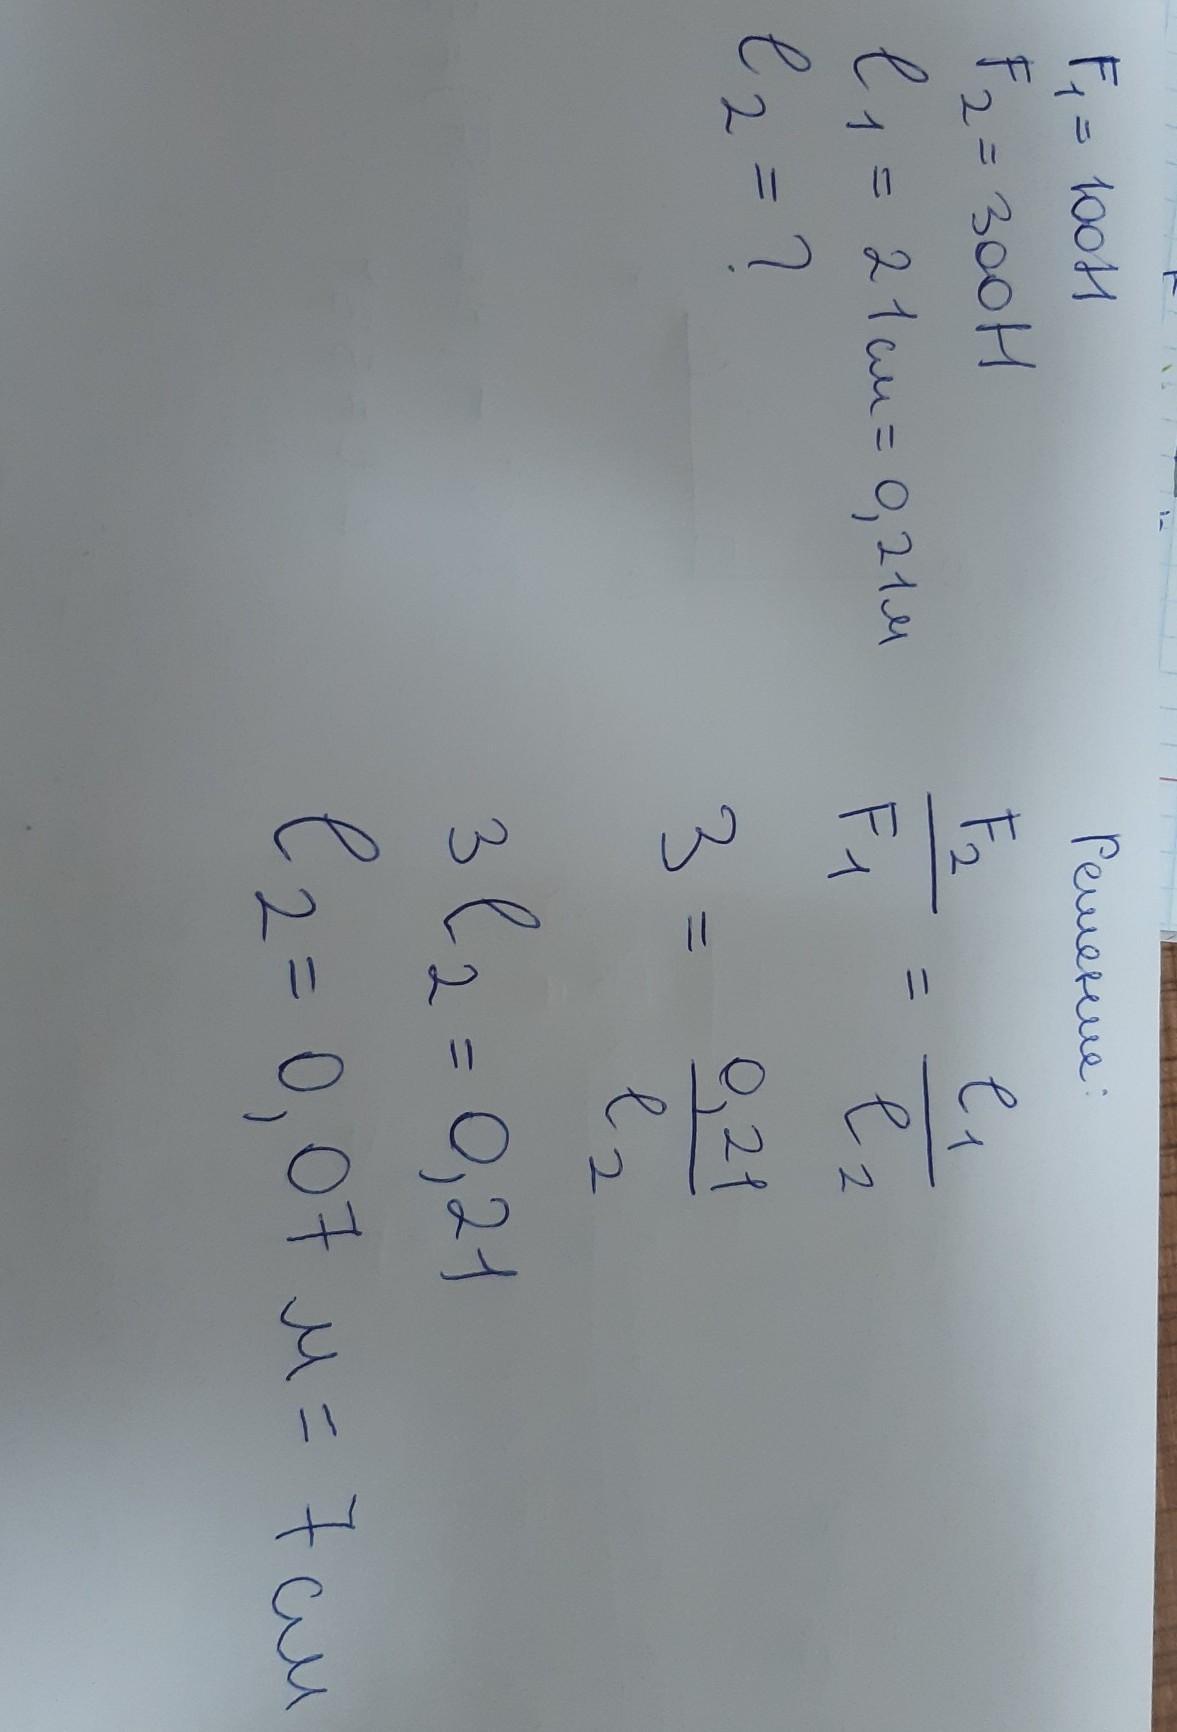 F₁ = 100Н
F₂ = 300Н
ℓ₁ = 21см = 0,21м
ℓ₂ = ?
Решение:
F₂/F₁ = ℓ₁/ℓ₂
3 = 0,21/ℓ₂
3ℓ₂ = 0,21
ℓ₂ = 0,07 м = 7 см